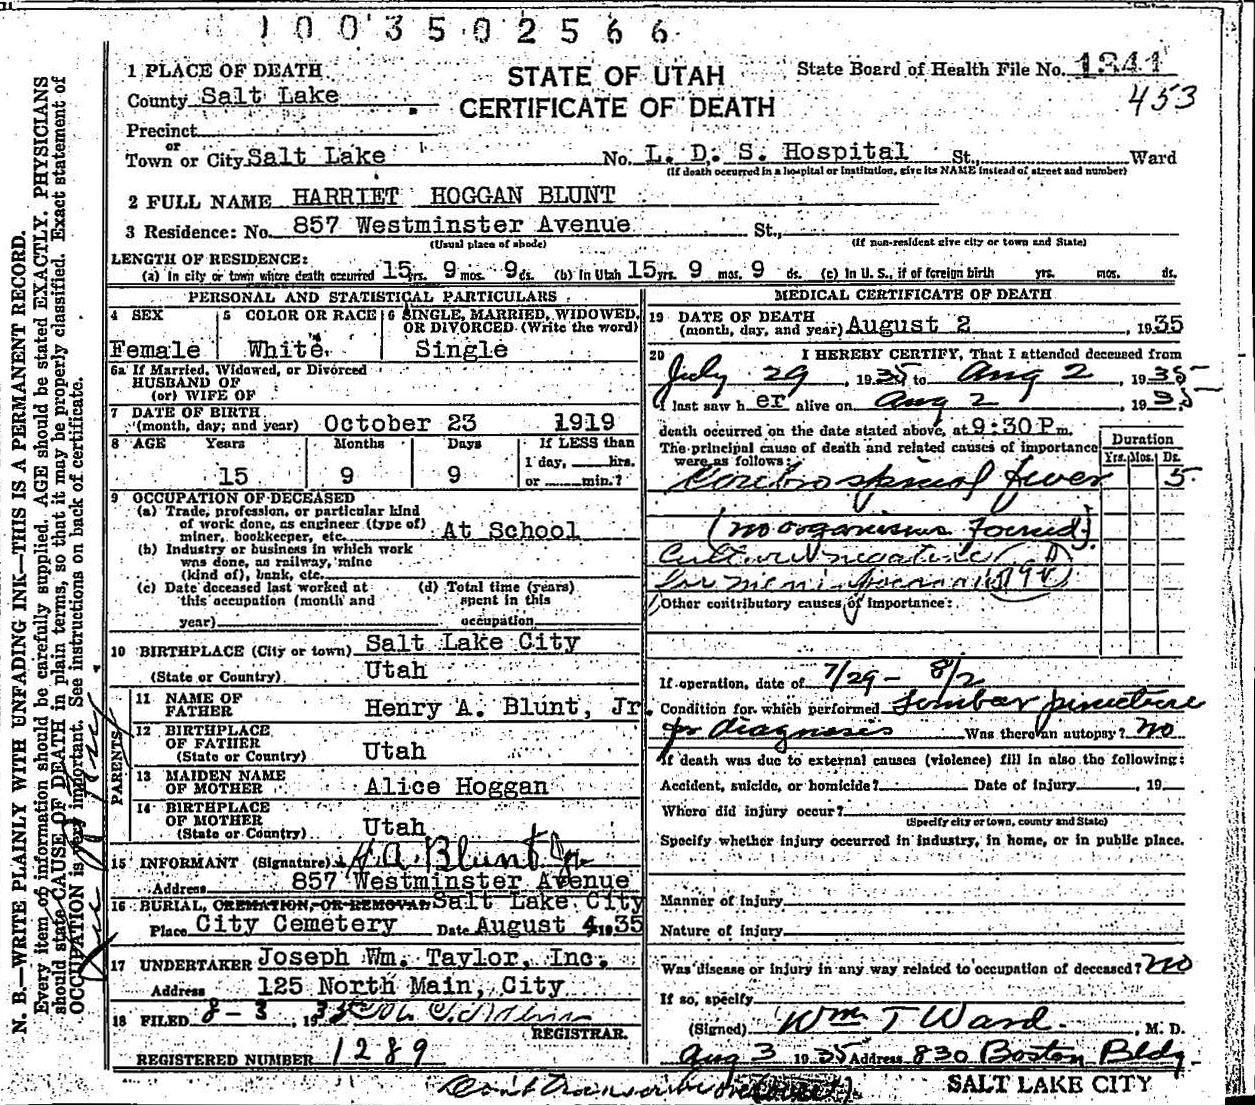 1003502566
1 PLACE OF DEATH
STATE OF UTAH
CERTIFICATE OF DEATH
State Board of Health File No. 1341
453
County Salt Lake
Precinct
or
Town or City Salt Lake No. L. D. S. Hospital St., Ward
(If death occurred in a hospital or institution, give its NAME instead of street and number)
2 FULL NAME HARRIET HOGGAN BLUNT
3 Residence: No. 857 Westminster Avenue St.,
(Usual place of abode) (If non-resident give city or town and State)
LENGTH OF RESIDENCE:
(a) In city or town where death occurred 15 yrs. 9 mos. 9 ds. (b) In Utah 15 yrs. 9 mos. 9 ds. (c) In U. S., if of foreign birth yrs. mos. ds.
PERSONAL AND STATISTICAL PARTICULARS
4 SEX 5 COLOR OR RACE 6 SINGLE, MARRIED, WIDOWED, OR DIVORCED (Write the word)
Female White Single
6a If Married, Widowed, or Divorced
HUSBAND OF
(or) WIFE OF
7 DATE OF BIRTH
(month, day, and year) October 23 1919
8 AGE Years Months Days If LESS than
15 9 9 1 day, hrs.
or min.?
9 OCCUPATION OF DECEASED
(a) Trade, profession, or particular kind
of work done, as engineer (type of)
miner, bookkeeper, etc. At School
(b) Industry or business in which work
was done, as railway, mine
(kind of), bank, etc.
(c) Date deceased last worked at (d) Total time (years)
this occupation (month and spent in this
year) occupation
10 BIRTHPLACE (City or town) Salt Lake City
(State or Country) Utah
PARENTS
11 NAME OF
FATHER Henry A. Blunt, Jr.
12 BIRTHPLACE
OF FATHER
(State or Country) Utah
13 MAIDEN NAME
OF MOTHER Alice Hoggan
14 BIRTHPLACE
OF MOTHER
(State or Country) Utah
15 INFORMANT (Signature) H A Blunt Jr
Address 857 Westminster Avenue
16 BURIAL, CREMATION, OR REMOVAL Salt Lake City
Place City Cemetery Date August 4 1935
17 UNDERTAKER Joseph Wm. Taylor, Inc.
Address 125 North Main, City
18 FILED 8-3, 1935
REGISTRAR.
REGISTERED NUMBER 1289
MEDICAL CERTIFICATE OF DEATH
19 DATE OF DEATH
(month, day, and year) August 2, 1935
20 I HEREBY CERTIFY, That I attended deceased from
July 29, 1935 to Aug 2 1935
I last saw her alive on Aug 2, 1935
death occurred on the date stated above, at 9:30 P m.
The principal cause of death and related causes of importance
were as follows:
Duration
Yrs. Mos. Ds.
Cerebrospinal fever 5
(no organisms found)
Culture negative
for
Other contributory causes of importance:
If operation, date of 7/29 - 8/2
Condition for which performed Lumbar puncture
for diagnosis Was there an autopsy? no
If death was due to external causes (violence) fill in also the following:
Accident, suicide, or homicide? Date of injury, 19
Where did injury occur?
(Specify city or town, county and State)
Specify whether injury occurred in industry, in home, or in public place.
Manner of Injury
Nature of injury
Was disease or injury in any way related to occupation of deceased? no
If so, specify
(Signed) Wm T Ward, M. D.
Aug 3 1935 Address 830 Boston Bldg.
SALT LAKE CITY
N. B.—WRITE PLAINLY WITH UNFADING INK—THIS IS A PERMANENT RECORD.
Every item of information should be carefully supplied. AGE should be stated EXACTLY. PHYSICIANS
should state CAUSE OF DEATH in plain terms, so that it may be properly classified. Exact statement of
OCCUPATION is very important. See instructions on back of certificate.